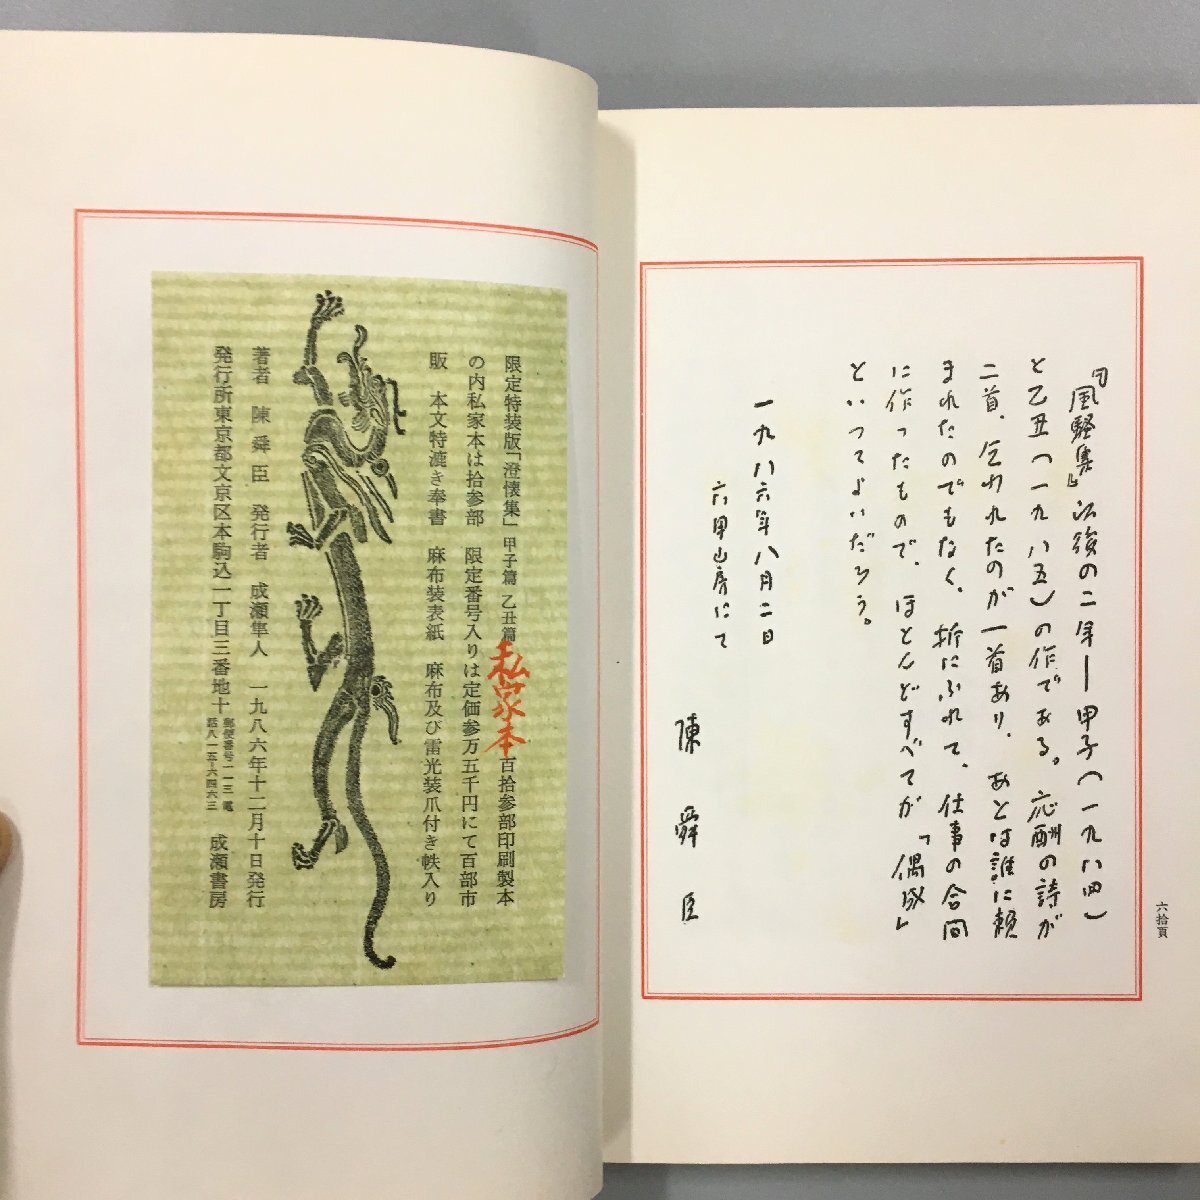 『風騒集』以後の二年―甲子(一九八四)
と乙丑(一九八五)の作である。応酬の詩が
二首、乞われたのが一首あり、あとは誰に頼
まれたのでもなく、折にふれて、仕事の合間
に作ったもので、ほとんどすべてが「偶成」
といってよいだろう。
一九八六年八月二日
六甲山房にて
陳舜臣
六拾頁
限定特装版「澄懐集」甲子篇 乙丑篇 百拾参部印刷製本
私家本
の内私家本は拾参部 限定番号入りは定価参万五千円にて百部市
販 本文特漉き奉書 麻布装表紙 麻布及び雷光装爪付き帙入り
著者 陳舜臣 発行者 成瀬隼人 一九八六年十二月十日発行
発行所東京都文京区本駒込一丁目三番地十 郵便番号一一三 電話八一五―六四六三 成瀬書房